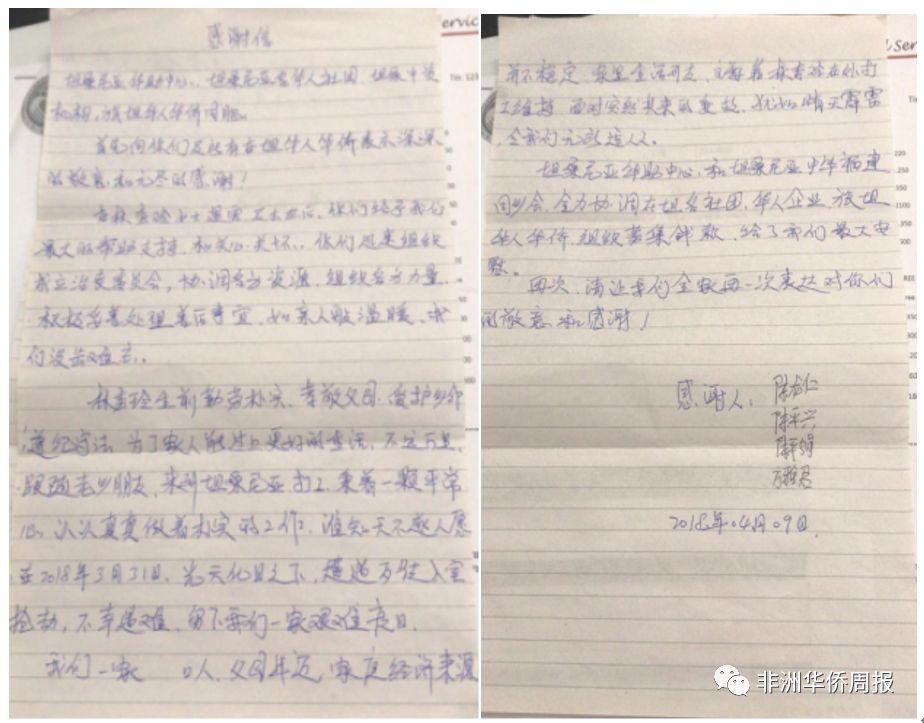 感谢信
坦桑尼亚华助中心、坦桑尼亚各华人社团、坦桑中资
机构,旅坦华人华侨同胞。
首先向你们及所有在坦华人华侨表示深深
的敬意和无尽的感谢!
在林杏玲女士遇害,你们给予我们
最大的帮助支持,和关心、关怀。你们迅速组织
成立治丧委员会,协调各方资源,组织各方力量,
积极妥善处理善后事宜,如亲人般温暖,我
们没齿难忘。
林杏玲生前勤劳朴实,孝敬父母,爱护乡邻
遵纪守法,为了家人能过上更好的生活,不远万里,
跟随老乡朋友,来到坦桑尼亚打工,秉着一颗平常
心,认认真真做着朴实的工作,谁知天不遂人愿
在2018年3月31日,光天化日之下,遭遇歹徒入室
抢劫,不幸遇难,留下我们一家艰难度日.
我们一家 口人,父母年迈,家庭经济来源
并不稳定,家里生活开支,主要靠林杏玲在外打
工维持,面对突如其来的变故,犹如晴天霹雳
令我们无所适从。
坦桑尼亚华助中心,和坦桑尼亚中华福建
同乡会,全力协调在坦各社团,华人企业,旅坦
华人华侨,组织募集钱款,给了我们最大安
慰。
再次,请让我们全家再一次表达对你们
的敬意和感谢!
感谢人:陈
陈平兴
陈
2018年04月09日.
ervic
Tin 123
Ser
非洲华侨周报